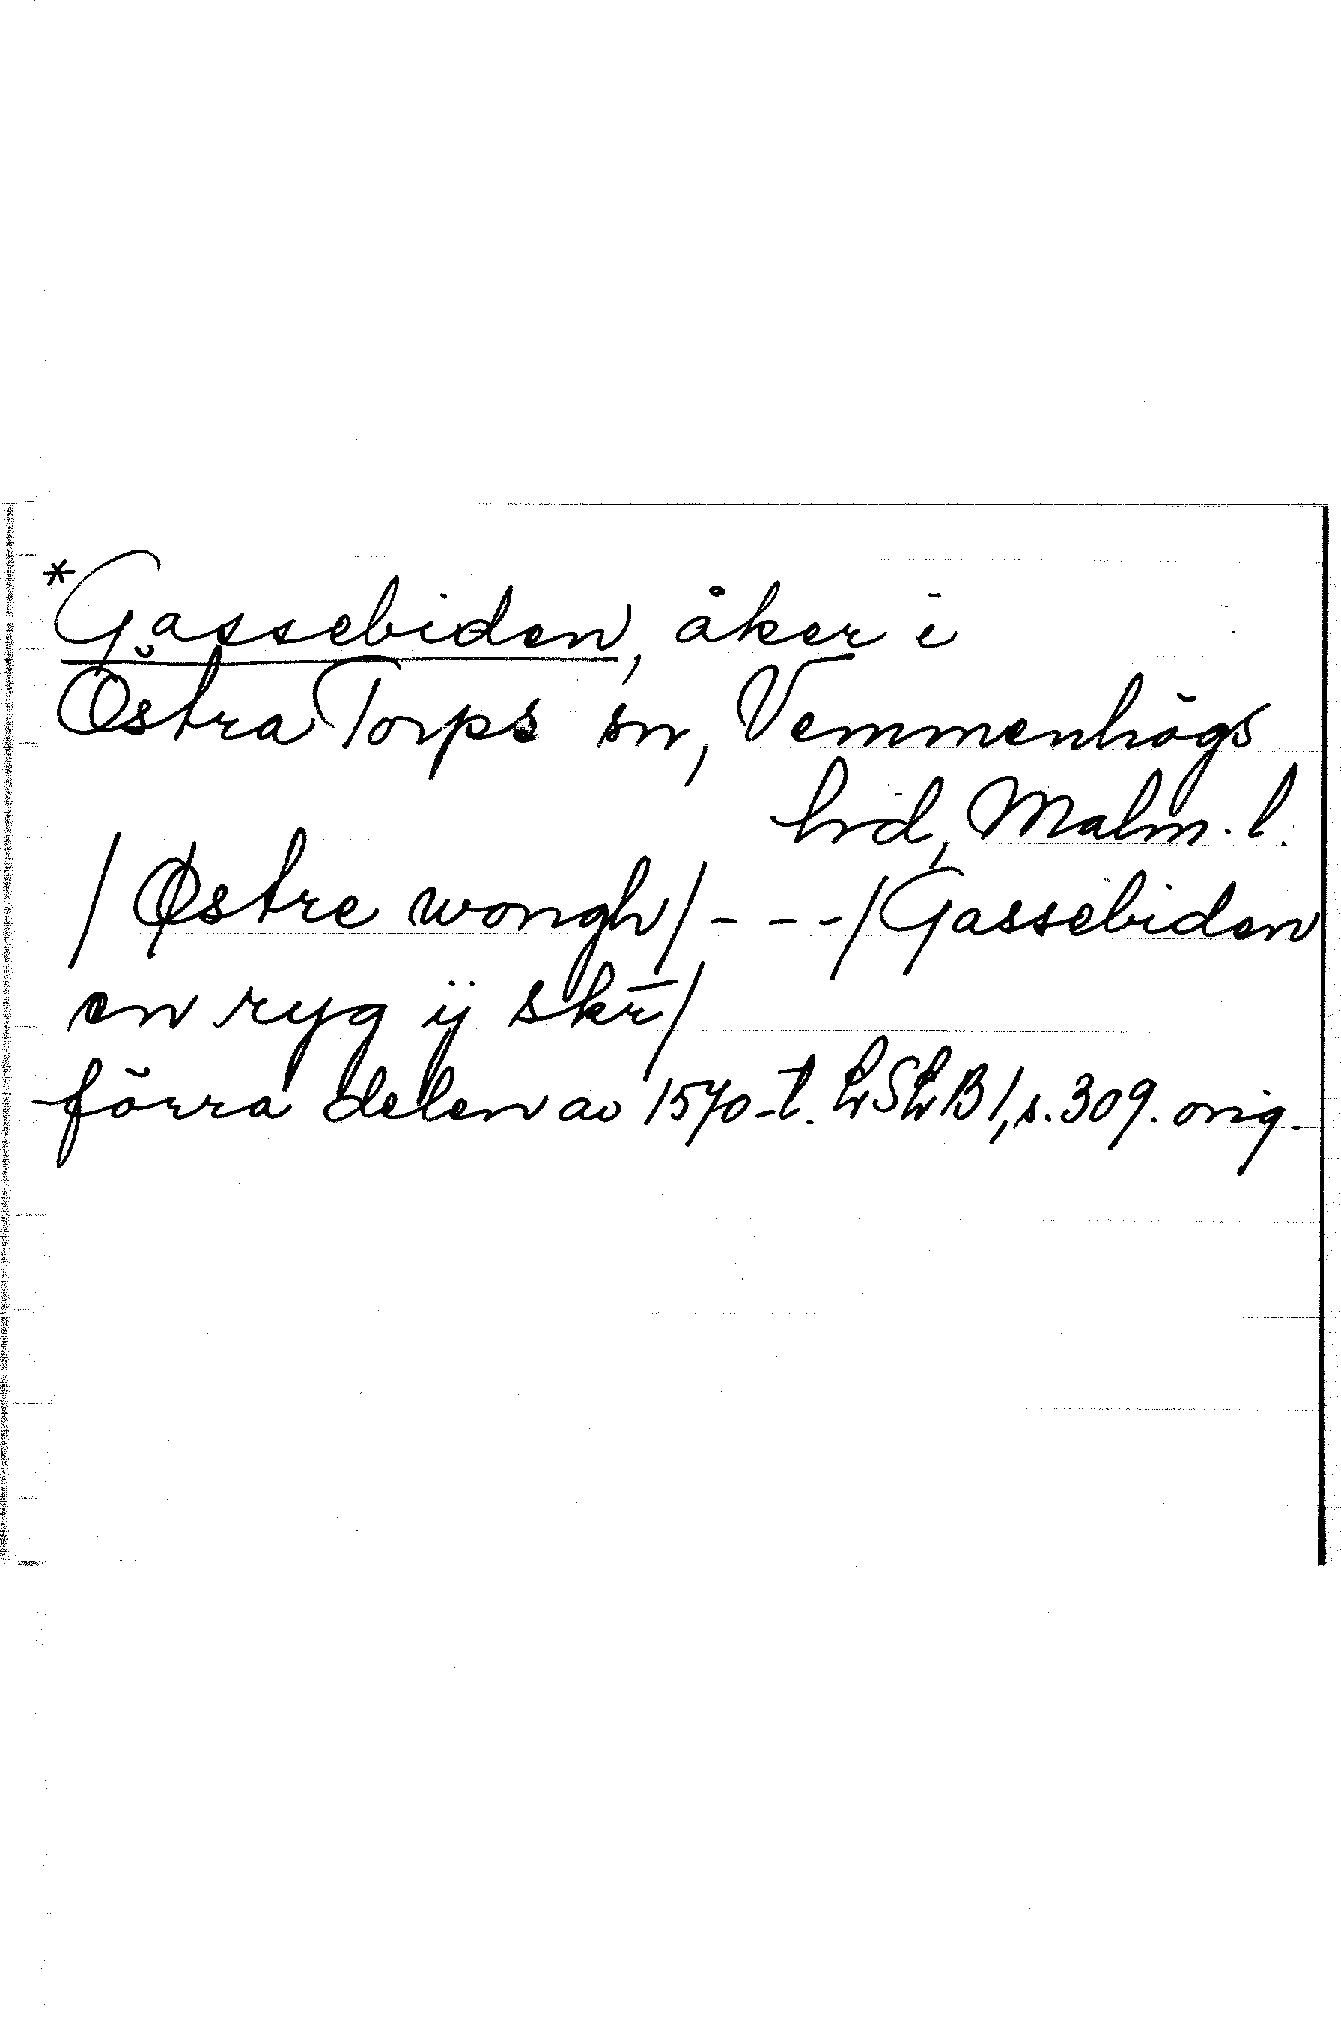 *Gassebiden, åker i
Östra Torps sn, Vemmenhögs
hrd, Malm. l.
/Østre wongh/- - -/Gassebiden
en ryg ij skr̄/
förra delen av 1570-t. LSLB1, s. 309. orig.